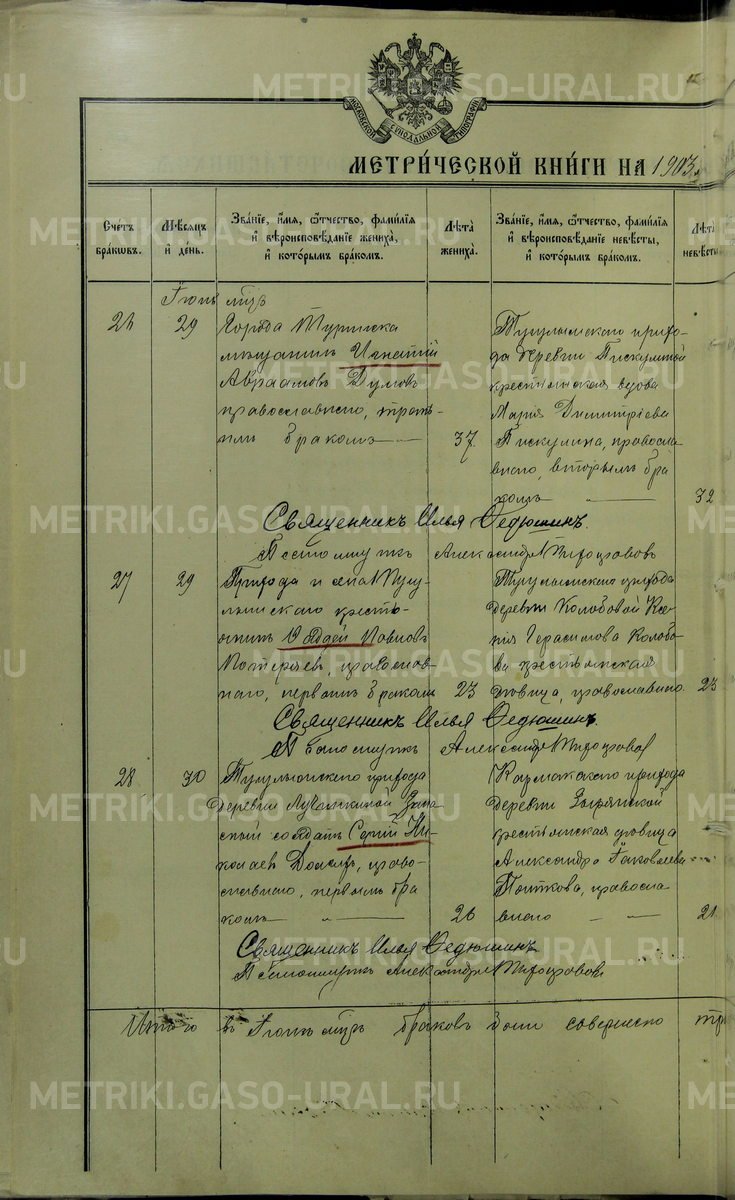 МОСКОВСКОЙ СѴНОДАЛЬНОЙ ТИПОГРАФІИ
МЕТРИ́ЧЕСКОЙ КНИ́ГИ НА 1903
Сче́тъ бра́ковъ.
Мѣ́сяцъ и де́нь.
Зва́нїе, и́мя, ѻ́тчество, фами́лїя и вѣроисповѣ́данїе жениха̀, и кото́рымъ бра́комъ.
Лѣ́та жениха̀.
Зва́нїе, и́мя, ѻ́тчество, фами́лїя и вѣроисповѣ́данїе невѣ́сты, и кото́рымъ бра́комъ.
Лѣ́та невѣ́сты
29
Города Туринска
мѣщанинъ Игнатій
Авраамовъ Думовъ
православнаго, треть-
имъ бракомъ
37
Тугулымскаго прихо-
да деревни Пискулиной
крестьянская вдова
Марія Димитріева
Пискулина, правосла-
внаго, вторымъ бра
комъ
32
Священникъ Илья Ѳедюшинъ.
Псаломщикъ Александръ
27
29
Прихода и села Тугу-
лымскаго кресть-
янинъ Ѳаддей Павловъ
православ-
наго, первымъ бракомъ
23
Тугулымскаго прихода
деревни Колобовой Ксе-
нія Герасимова Колобо-
ва крестьянская
дѣвица, православнаго
23
Священникъ Илья Ѳедюшинъ.
Псаломщикъ Александръ
28
30
Тугулымскаго прихода
деревни Лучинкиной Запа-
сный солдатъ Сергій Ни-
колаевъ право-
славнаго, первымъ бра
комъ
26
Кармакскаго прихода
деревни Зырянской
крестьянская дѣвица
Александра Іаковлева
правосла
внаго
21
Священникъ Илья Ѳедюшинъ
Псаломщикъ Александръ
Итого въ браковъ было совершено
METRIKI.GASO-URAL.RU